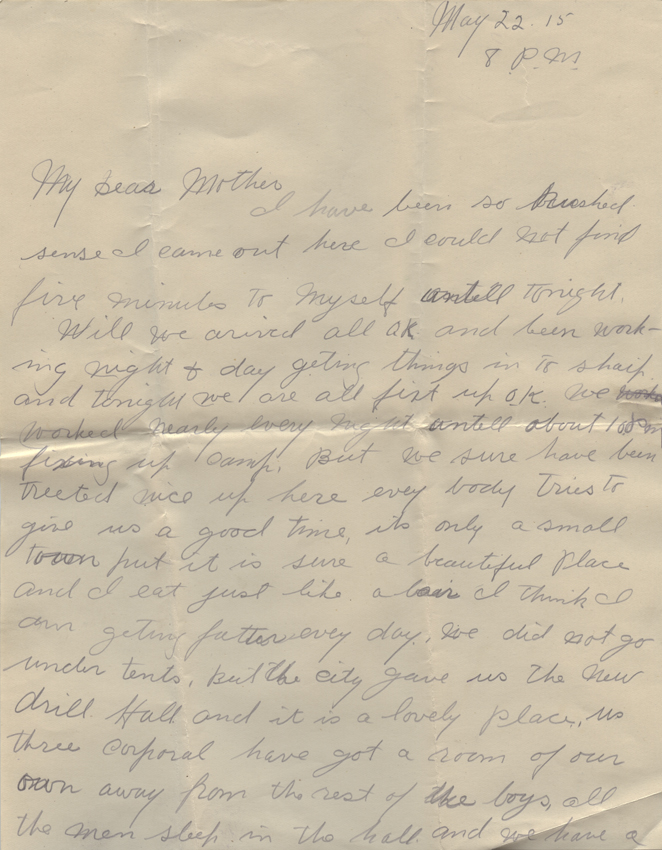 May 22. 15
8 P.M.
My Dear Mother
I have been so rushed
sense I came out here I could not find
five minutes to myself antell tonight.
Will we arived all OK and been work-
ing night & day geting things in to shaip
and tonight we are all fixt up O.K. We
worked nearly every night antell about 10 P.M
fixing up camp. But we sure have been
treeted nice up here evey body tries to
give us a good time, its only a small
town put it is sure a beautiful place
and I eat just like a bair I think I
am geting fatter evey day. We did not go
under tents, But the city gave us the new
drill Hall and it is a lovely place, us
three corporal have got a room of our
own away from the rest of the boys, all
the men sleep in the hall and we have a